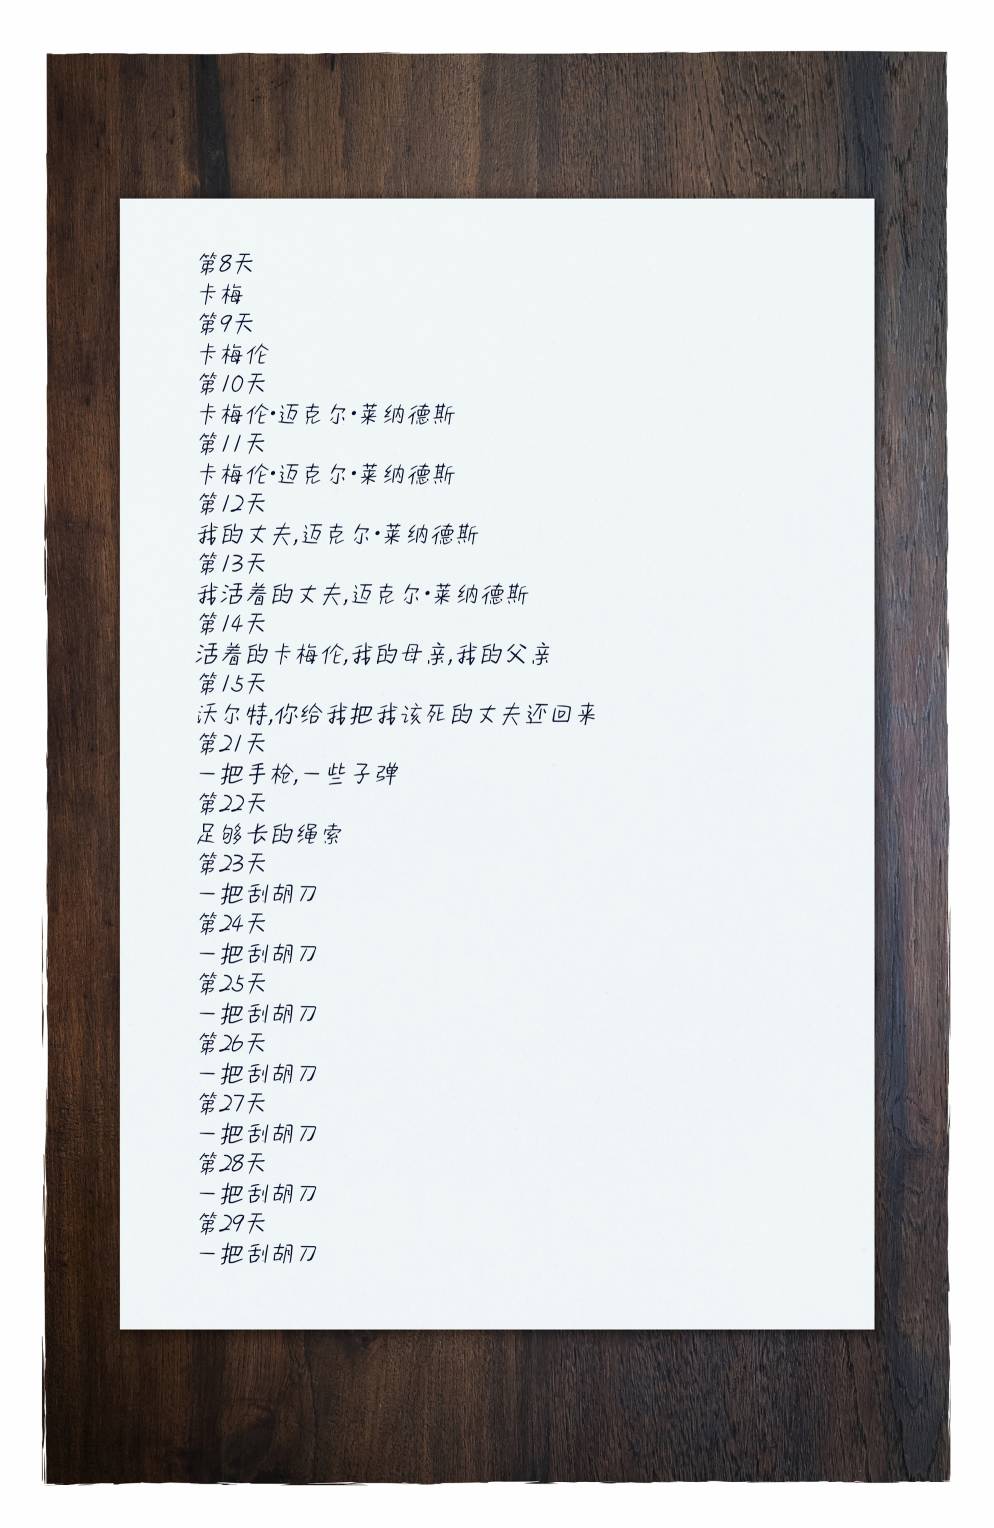 第8天
卡梅
第9天
卡梅伦
第10天
卡梅伦·迈克尔·莱纳德斯
第11天
卡梅伦·迈克尔·莱纳德斯
第12天
我的丈夫,迈克尔·莱纳德斯
第13天
我活着的丈夫,迈克尔·莱纳德斯
第14天
活着的卡梅伦,我的母亲,我的父亲
第15天
沃尔特,你给我把我该死的丈夫还回来
第21天
一把手枪,一些子弹
第22天
足够长的绳索
第23天
一把刮胡刀
第24天
一把刮胡刀
第25天
一把刮胡刀
第26天
一把刮胡刀
第27天
一把刮胡刀
第28天
一把刮胡刀
第29天
一把刮胡刀